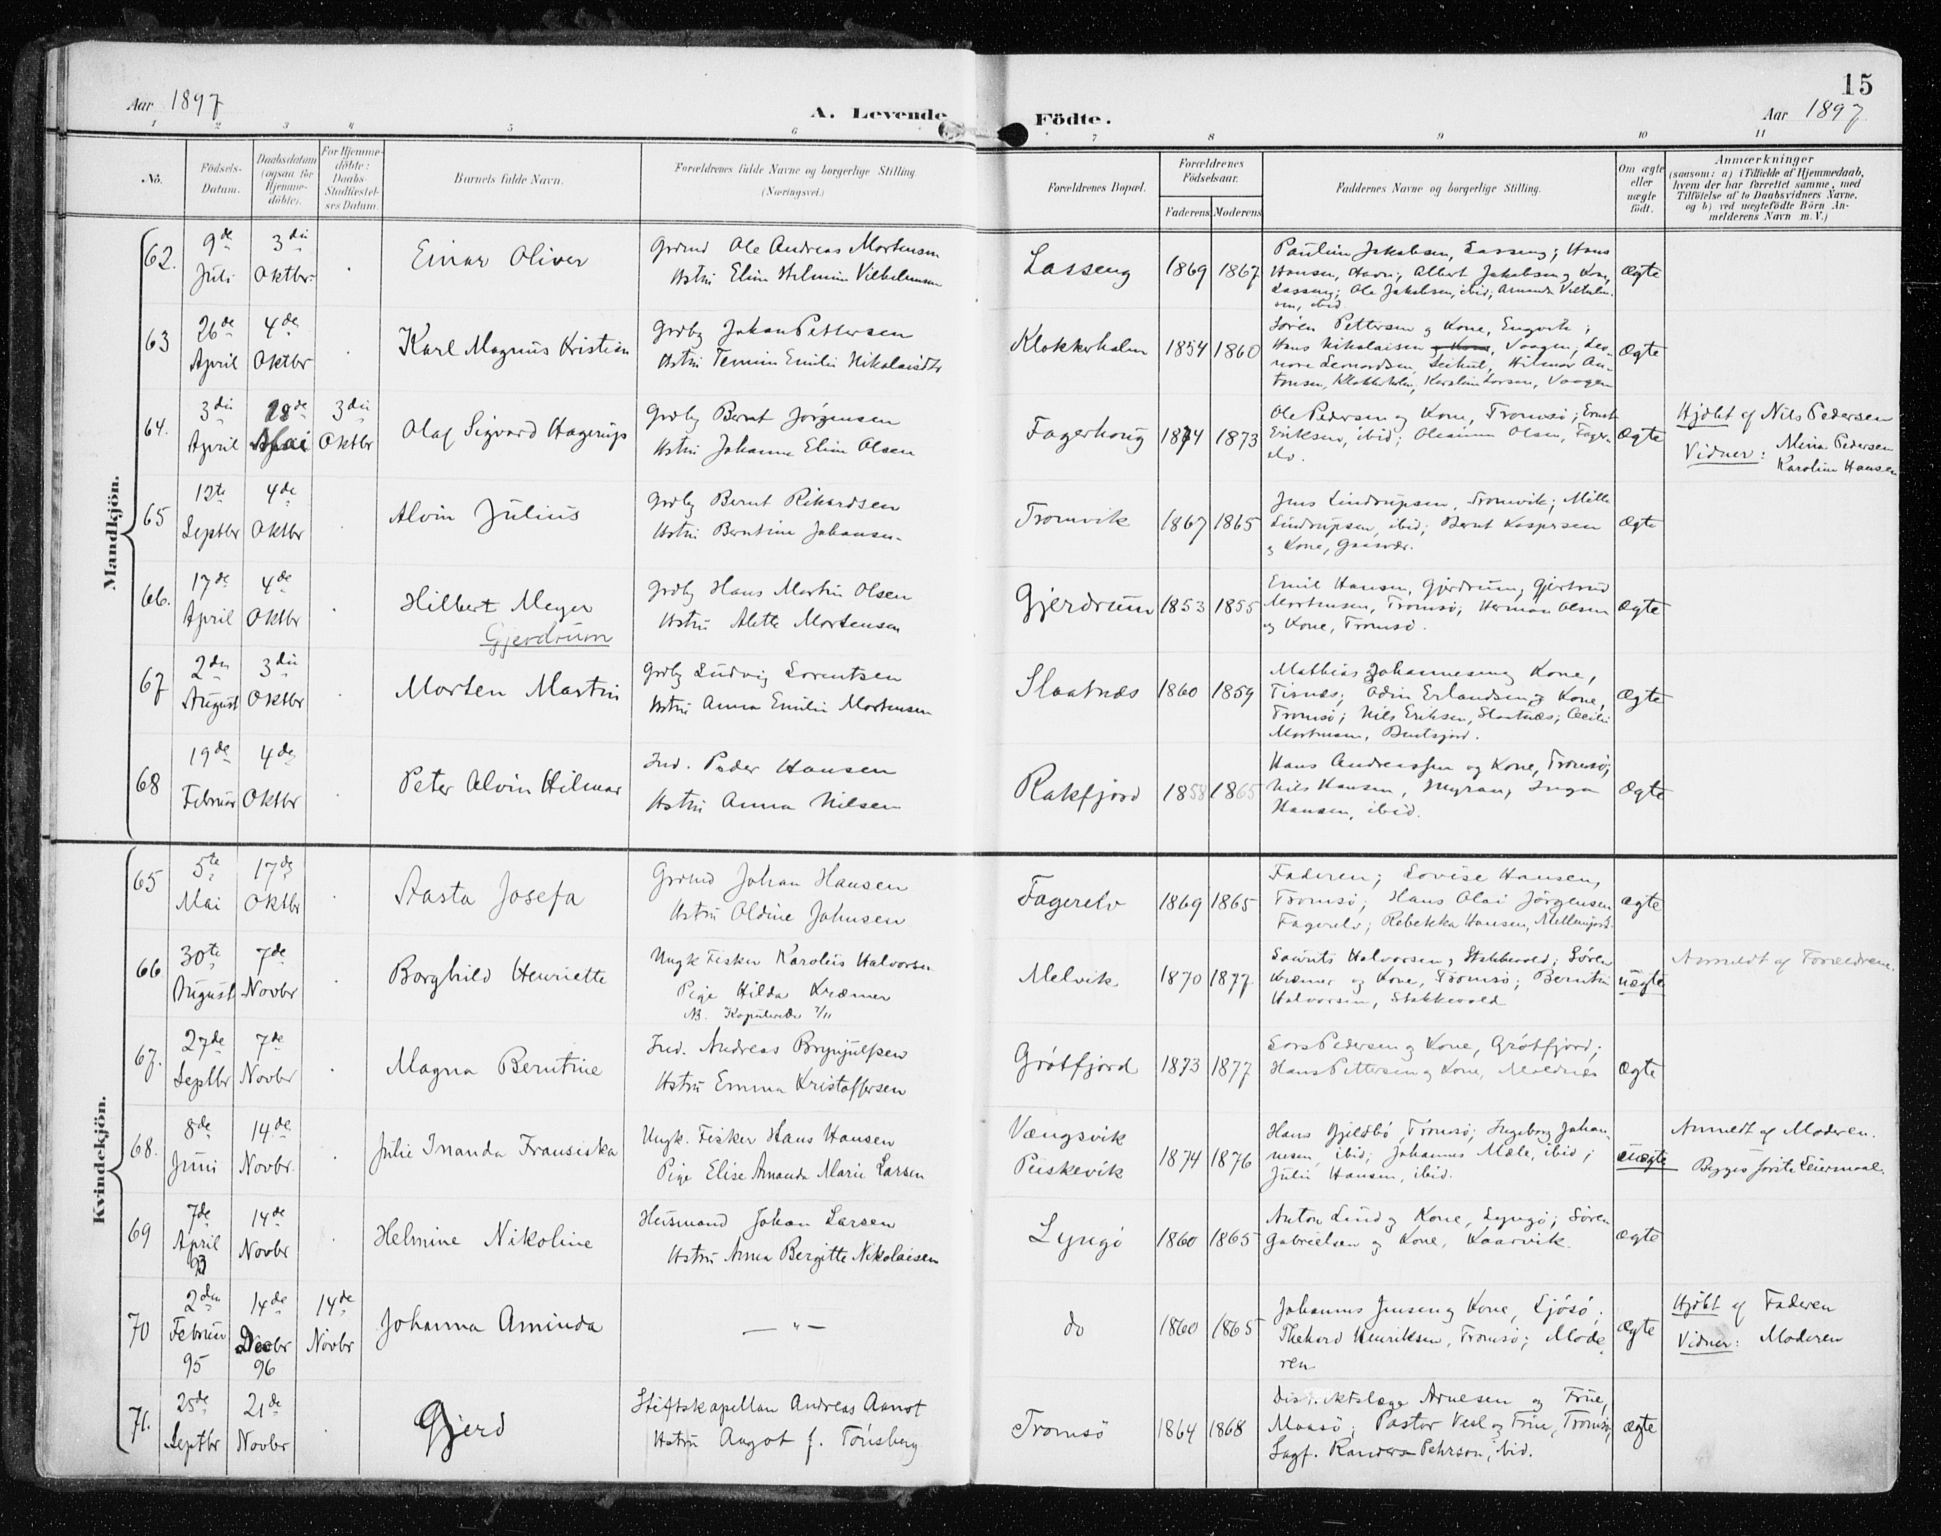 15
Aar 1897 A. Levende Födte. Aar 1897
1 2 3 4 5 6 7 8 9 10 11
No.
Födsels-
Datum.
Daabsdatum
(ogsaa for
Hjemme-
döbte).
For Hjemme-
döbte:
Daabs-
Stadfæstel-
ses Datum.
Barnets fulde Navn.
Forældrenes fulde Navne og borgerlige Stilling
(Næringsvei.)
Forældrenes Bopæl.
Forældrenes
Födselsaar.
Faderens Moderens
Faddernes Navne og borgerlige Stilling.
Om ægte
eller
uægte
födt.
Anmærkninger
(saasom: a) i Tilfælde af Hjemmedaab,
hvem der har forrettet samme, med
Tilföielse af to Daabsvidners Navne,
og b) ved uægtefödte Börn An-
melderens Navn m. V.)
Mandkjön.
62.
9de
Juli
3die
Oktbr.
Einar Oliver
Grdmd Ole Andreas Mortensen
Hstru Elin Helmine Vilhelmsen
Lasseng
1869 1867
Pauline Jakobsen, Lasseng; Hans
Hansen, Havn; Albert Jakobsen og Kone,
Lasseng; Ole Jakobsen, ibid; Amanda Vilhelm-
sen, ibid
Ægte
63
26de
April
4de
Oktbr
Karl Magnus Kristian
Grdbg Johan Pettersen
Hstru Emilie Nikolaisdtr
Klokkerholm
1854 1860
Sören Pettersen og Kone, Engvik;
Hans Nikolaisen og Kone, Vaagen; Le-
nore Leonardsen, Hilmar An-
tonsen, Klokkerholm, Karoline Larsen, Vaagen
Ægte
64.
3die
April
28de
Mai
3die
Oktbr
Olaf Sigvard Hagerup
Grdbg Bernt Jörgensen
Hstru Johanna Elise Olsen
Fagerhaug
1874 1873
Ole Pedersen og Kone, Tromsö; Ernst
Eriksen, ibid; Olesine Olsen, Fager-
elv.
Ægte
Hjdbt af Nils Pedersen
Vidner: Mina Pedersen
Karoline Hansen
65
12te
Septbr
4de
Oktbr
Alvin Julius
Grdbg Bernt Rikardsen
Hstru Berntine Johansen
Tromvik
1867 1865
Jens Lindrupsen, Tromvik; Mille
Lindrupsen, ibid; Bernt Kaspersen
og Kone, Gaasvær.
Ægte
66.
17de
April
4de
Oktbr
Hilbert Meyer
Gjerdrum
Grdbg Hans Martin Olsen
Hstru Alette Mortensen
Gjerdrum
1853 1855
Emil Hansen, Gjerdrum; Gjertrud
Mortensen, Tromsö; Herman Olsen
og Kone, Tromsö.
Ægte
67
2den
August
3die
Oktbr
Morten Martin
Grdbg Ludvig Lorentsen
Hstru Anna Emilie Mortensen
Slaatnæs
1860 1859
Mathias Johannesen og Kone,
Tisnæs; Odin Erlandsen og Kone,
Tromsö; Nils Eriksen, Slaatnæs; Cecilie
Mortensen, Bentsjord.
Ægte
68
19de
Februar
4de
Oktbr
Peter Alvin Hilmar
Ind. Peder Hansen
Hstru Anna Nilsen
Rakfjord
1858 1865
Hans Andreassen og Kone, Tromsö;
Nils Hansen, Myran; Inga
Hansen, ibid.
Ægte
Kvindekjön.
65
5te
Mai
17de
Oktbr
Aasta Josefa
Grdmd Johan Hansen
Hstru Oldine Johnsen
Fagerelv
1869 1865
Faderen; Lovise Hansen,
Tromsö; Hans Olai Jörgensen
Fagerelv; Rebekka Hansen, Mellemjord.
ægte
66
30te
August
7de
Novbr
Borghild Henriette
Ungk Fisker Karolus Halvorsen
Pige Hilda Kræmer
NB. Kopulerede 7/11
Melvik
1870 1877
Laurits Halvorsen, Stakkevold; Sören
Kræmer og Kone, Tromsö; Berntine
Halvorsen, Stakkevold
uægte
Anmeldt af Forældrene.
67.
27de
Septbr
7de
Novbr
Magna Berntine
Ind. Andreas Brynjulfsen
Hstru Emma Kristoffersen
Grötfjord
1873 1877
Lars Pedersen og Kone, Grötfjord;
Hans Pettersen og Kone, Moldnæs
Ægte
68.
8de
Juni
14de
Novbr.
Julie Inanda Fransiska
Ungk. Fisker Hans Hansen
Pige Elise Amanda Marie Larsen
Vængsvik
Peiskevik
1874 1876
Hans Gjeldbö, Tromsö; Ingeborg Johan-
nesen, ibid; Johannes Mæle, ibid;
Julie Hansen, ibid.
uægte
Anmeldt af Moderen.
Begges förste Leiermaal.
69
7de
April
93
14de
Novbr
Helmine Nikoline
Husmand Johan Larsen
Hstru Anna Bergitte Nikolaisen
Lyngö
1860 1865
Anton Lind og Kone, Lyngö; Sören
Gabrielsen og Kone, Kaarvik.
ægte
70
2den
Februar
95
14de
Decbr
96
14de
Novbr
Johanna Aminda
— " —
do
1860 1865
Johannes Jensen og Kone, Ljösö;
Thekord Henriksen, Tromsö; Mode-
ren
ægte
Hjdbt af Faderen
Vidner: Moderen
71.
25de
Septbr
21de
Novbr
Gjerd
Stiftskapellan Andreas Aanot
Hstru Aagot f. Tönsberg
Tromsö
1864 1868
Distriktslæge Arnesen og Frue,
Maasö; Pastor Vesl og Frue, Tromsö;
Sagf. Randers Pehrson, ibid.
ægte